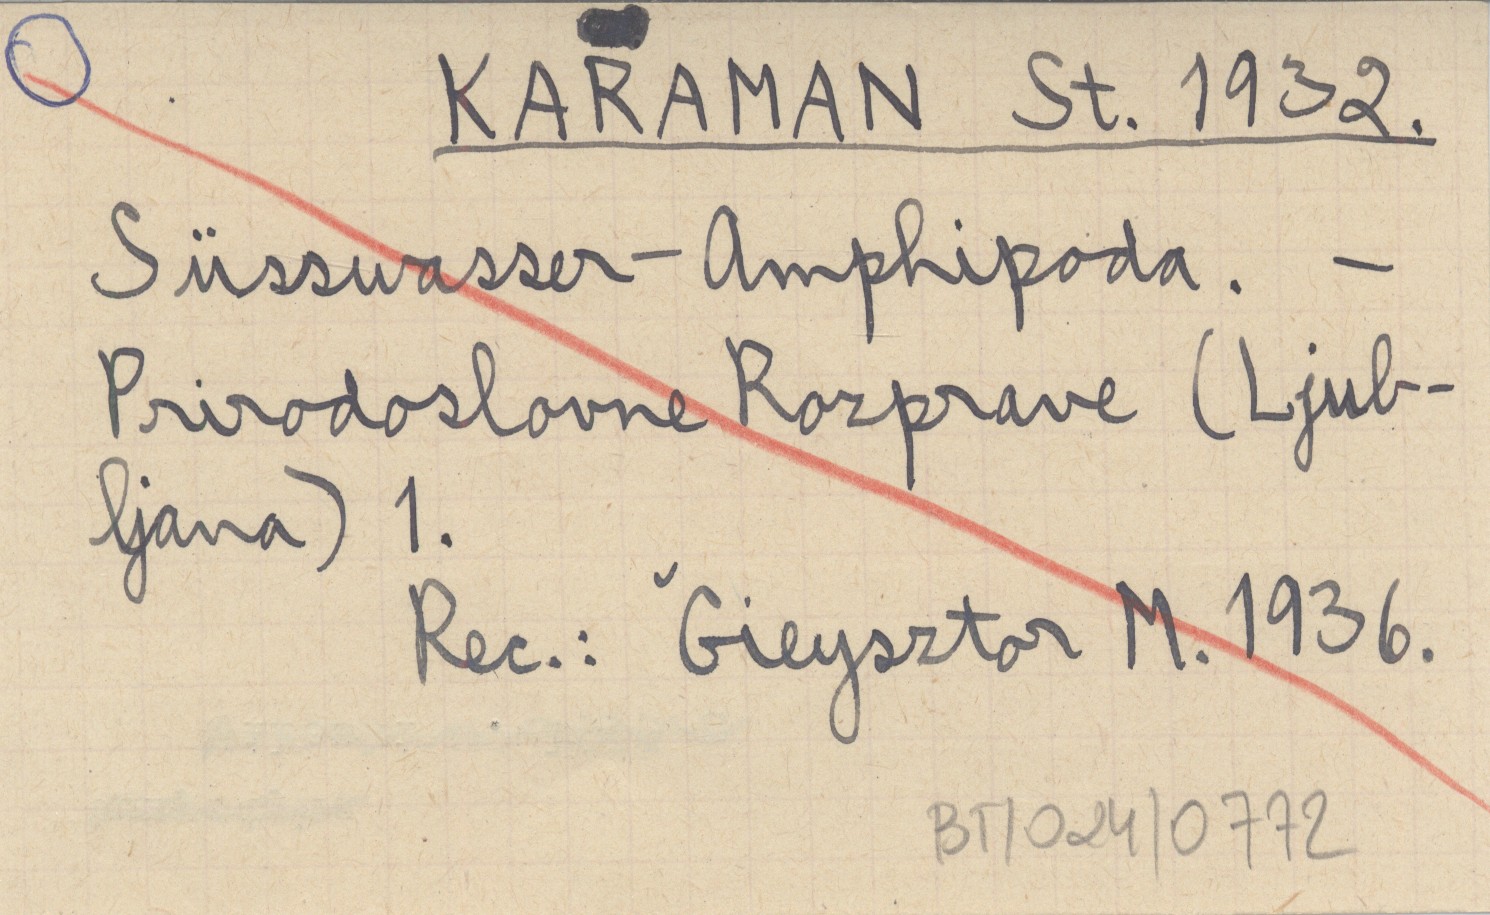 KARAMAN St. 1932.
Süsswasser-Amphipoda. -
Prirodoslovne Rozprave (Ljub-
ljana) 1.
Rec.: Gieysztor M. 1936.
BT/024/0772